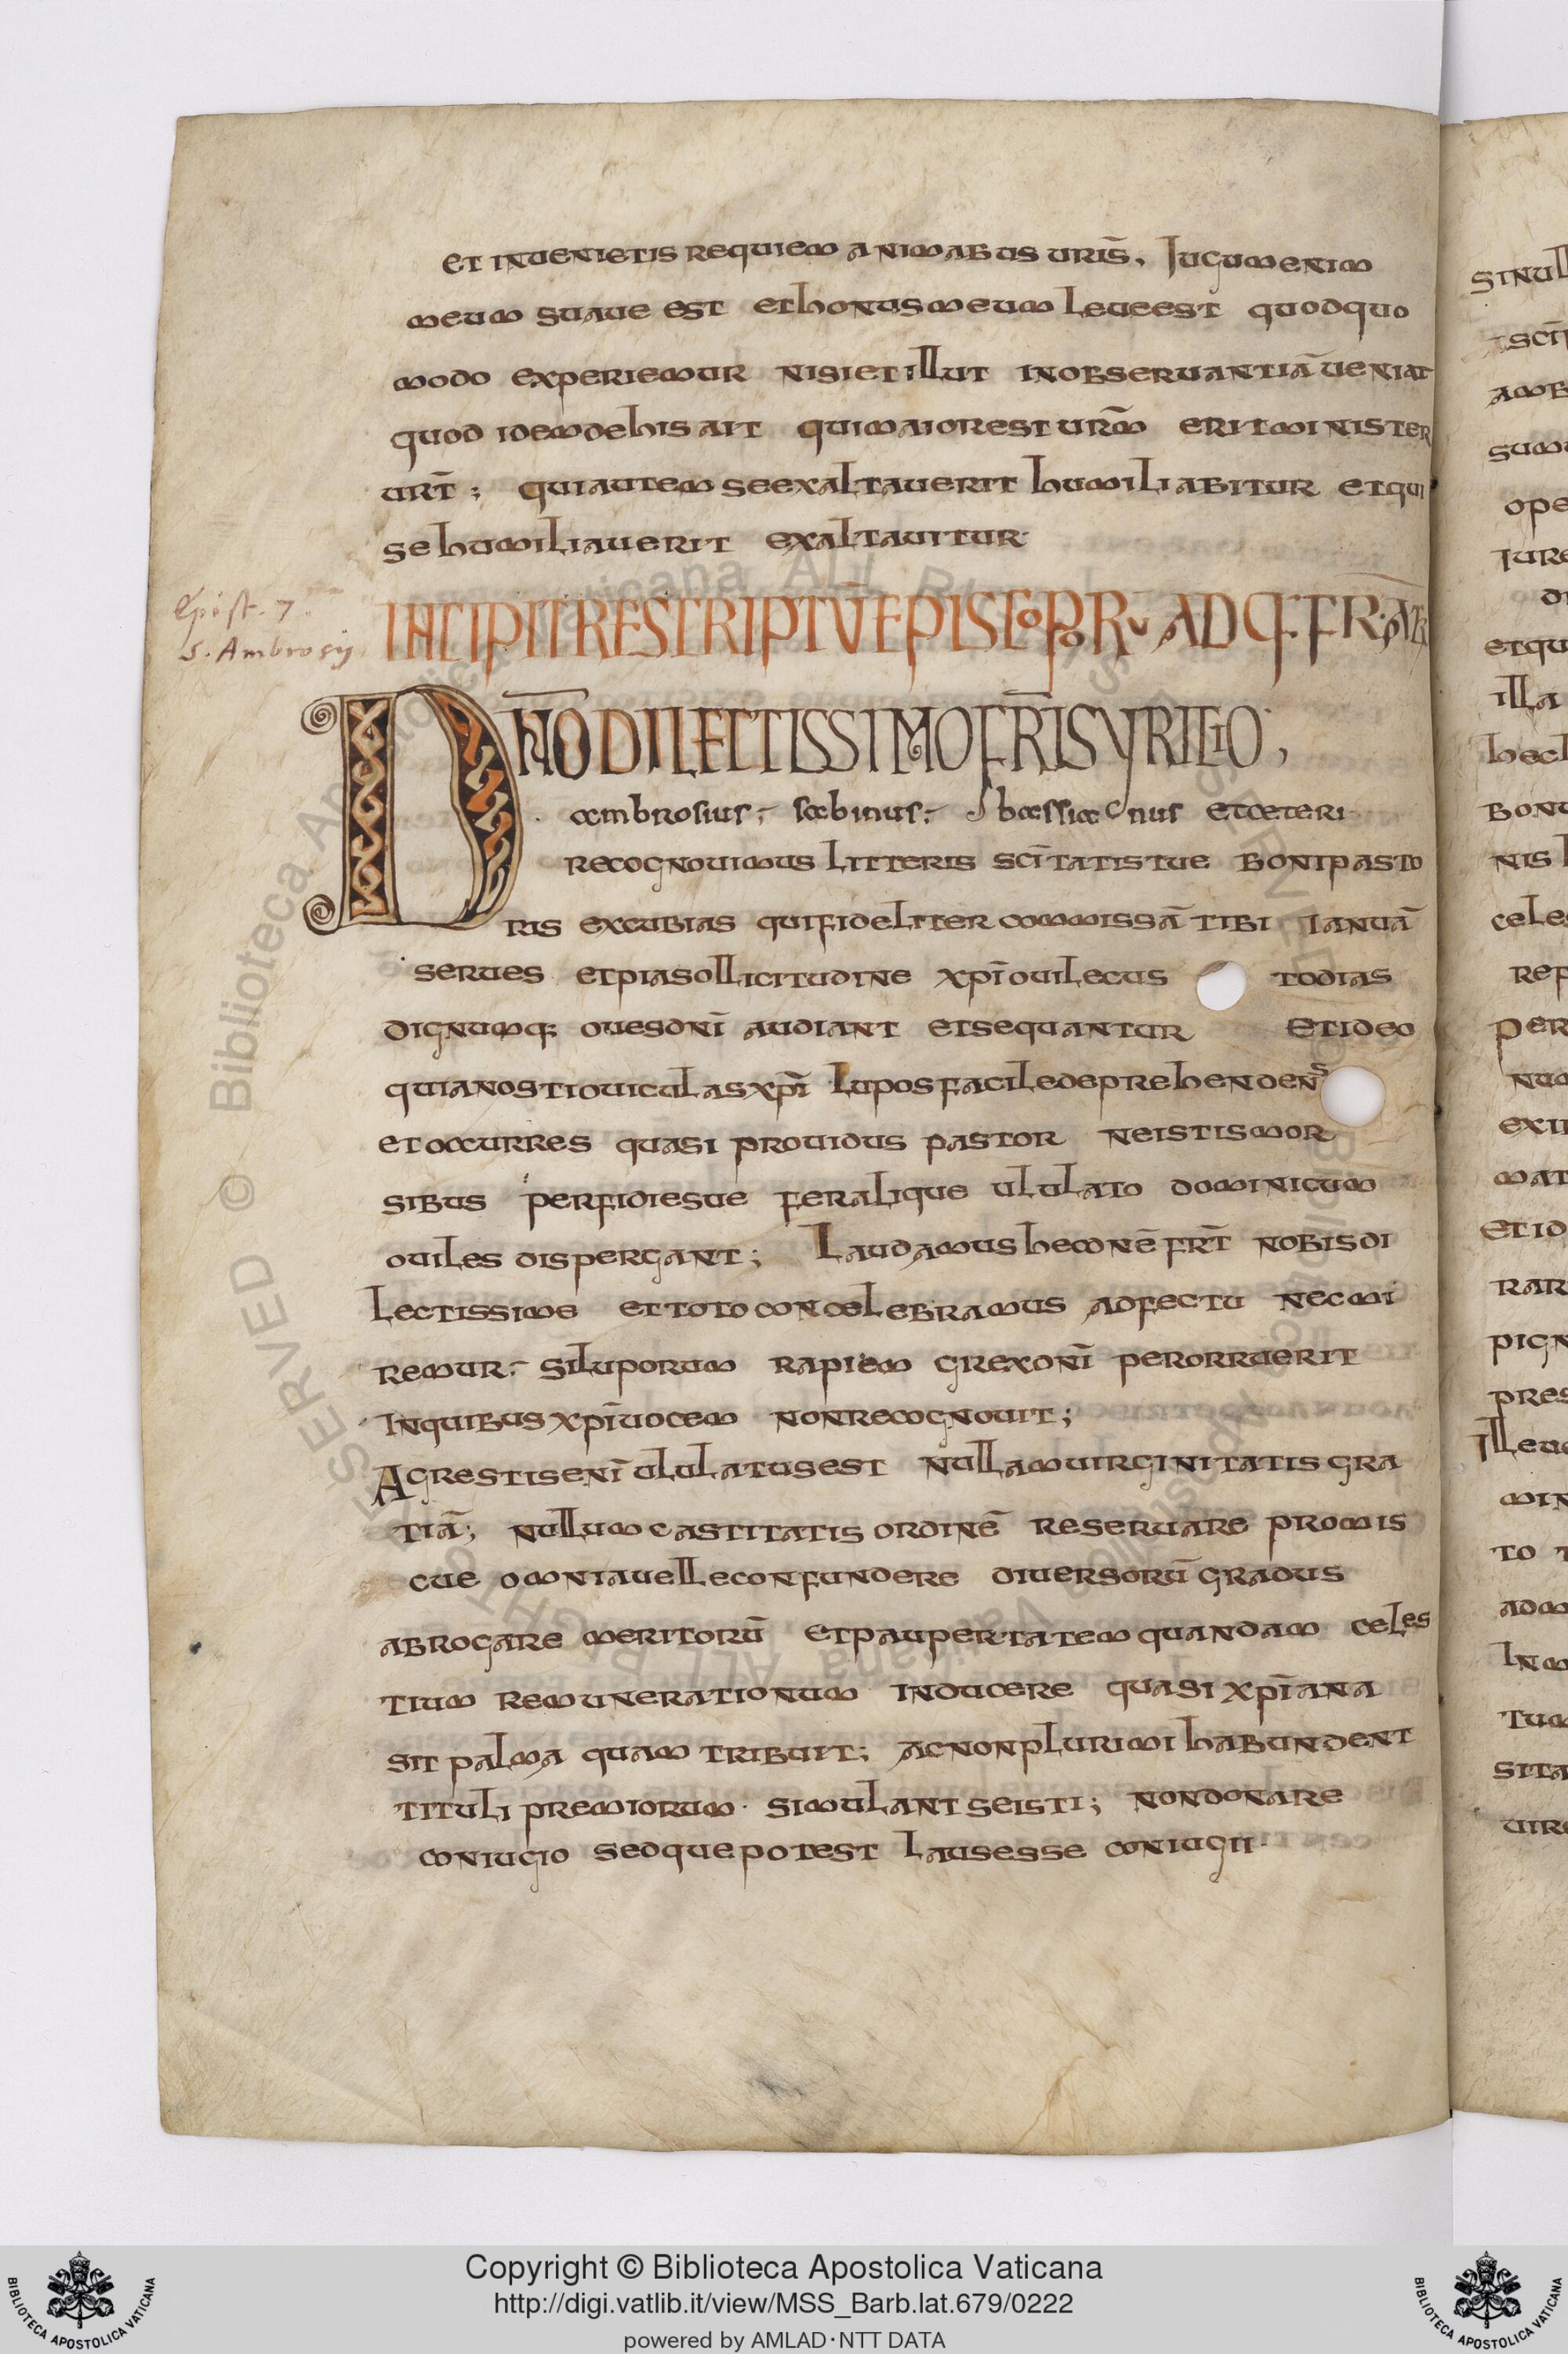 et inuenietis requiem animabus uris̄. Iugum enim
meum suaue est et honus meum leue est quod quo
modo experiemur nisi et illut in obseruantiā ueniat
quod idem de his ait qui maior est urm̄ erit minister
urt̄; qui autem se exaltauerit humiliabitur et qui
se humiliauerit exaltauitur·
Epist. 7.
S. Ambrosij
INCIPIT RESCRIPTŪ EPISCOPOR
DN̄O DILECTISSIMO FR̄I SYRICIO;
ambrosius; sabinus; bassianus et ceteri
recognouimus litteris scī̄tatis tue boni pasto
ris excubias qui fideliter commissā tibi ianuā
serues et pia sollicitudine xp̄i ouile cus todias
dignumq: oues dnī audiant et sequantur Et ideo
quia nosti ouiculas xp̄i lupos facile deprehendens
et occurres quasi prouidus pastor ne istis mor
sibus perfidie sue feralique ululato dominicum
ouiles dispergant; Laudamus hec dnē frt̄ nobis di
lectissime et toto concelebramus adfectu nec mi
remur; si luporum rapiem grex dnī perorruerit
in quibus xp̄i uocem non recognouit;
Agrestis enī ululatus est nullam uirginitatis gra
tiā; nullum castitatis ordinē reseruare promis
cue omnia uelle confundere diuersorū gradus
abrogare meritorū et paupertatem quandam celes
tium remunerationum inducere quasi xp̄iana
sit palma quam tribuit; ac non plurimi habundent
tituli premiorum· simulant se isti; non donare
coniugio sed que potest laus esse coniugii·
Copyright © Biblioteca Apostolica Vaticana
http://digi.vatlib.it/view/MSS_Barb.lat.679/0222
powered by AMLAD·NTT DATA
BIBLIOTECA APOSTOLICA VATICANA
BIBLIOTECA APOSTOLICA VATICANA